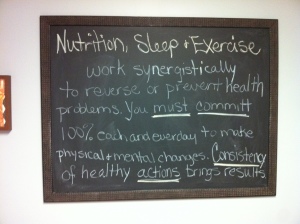 Nutrition, Sleep + Exercise
work synergistically
to reverse or prevent health
problems. You must committ
100% each and everday to make
physical + mental changes. Consistency
of healthy actions brings results